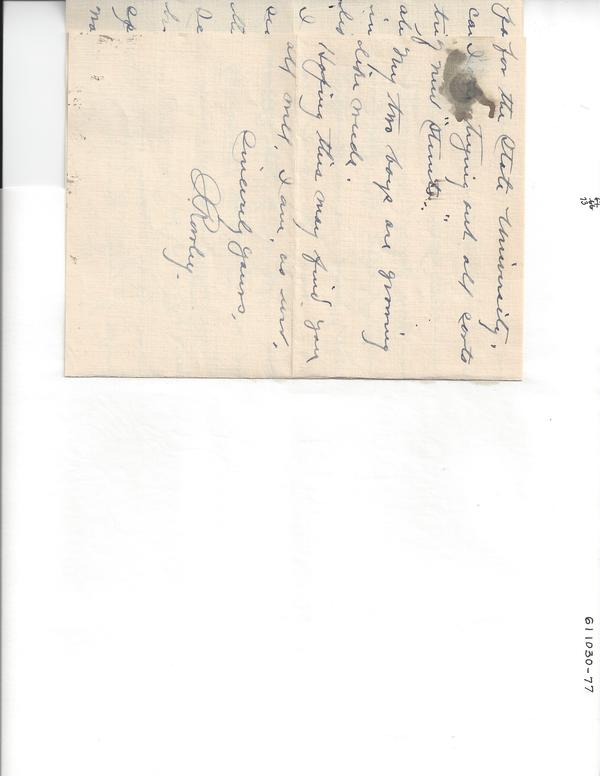 for the State University,
trying out all sorts
of new "Stunts".
My two boys are growing
like weeds.
Hoping this may find you
all well, I am, as ever,
Sincerely Yours,
Rowley.
611030-77